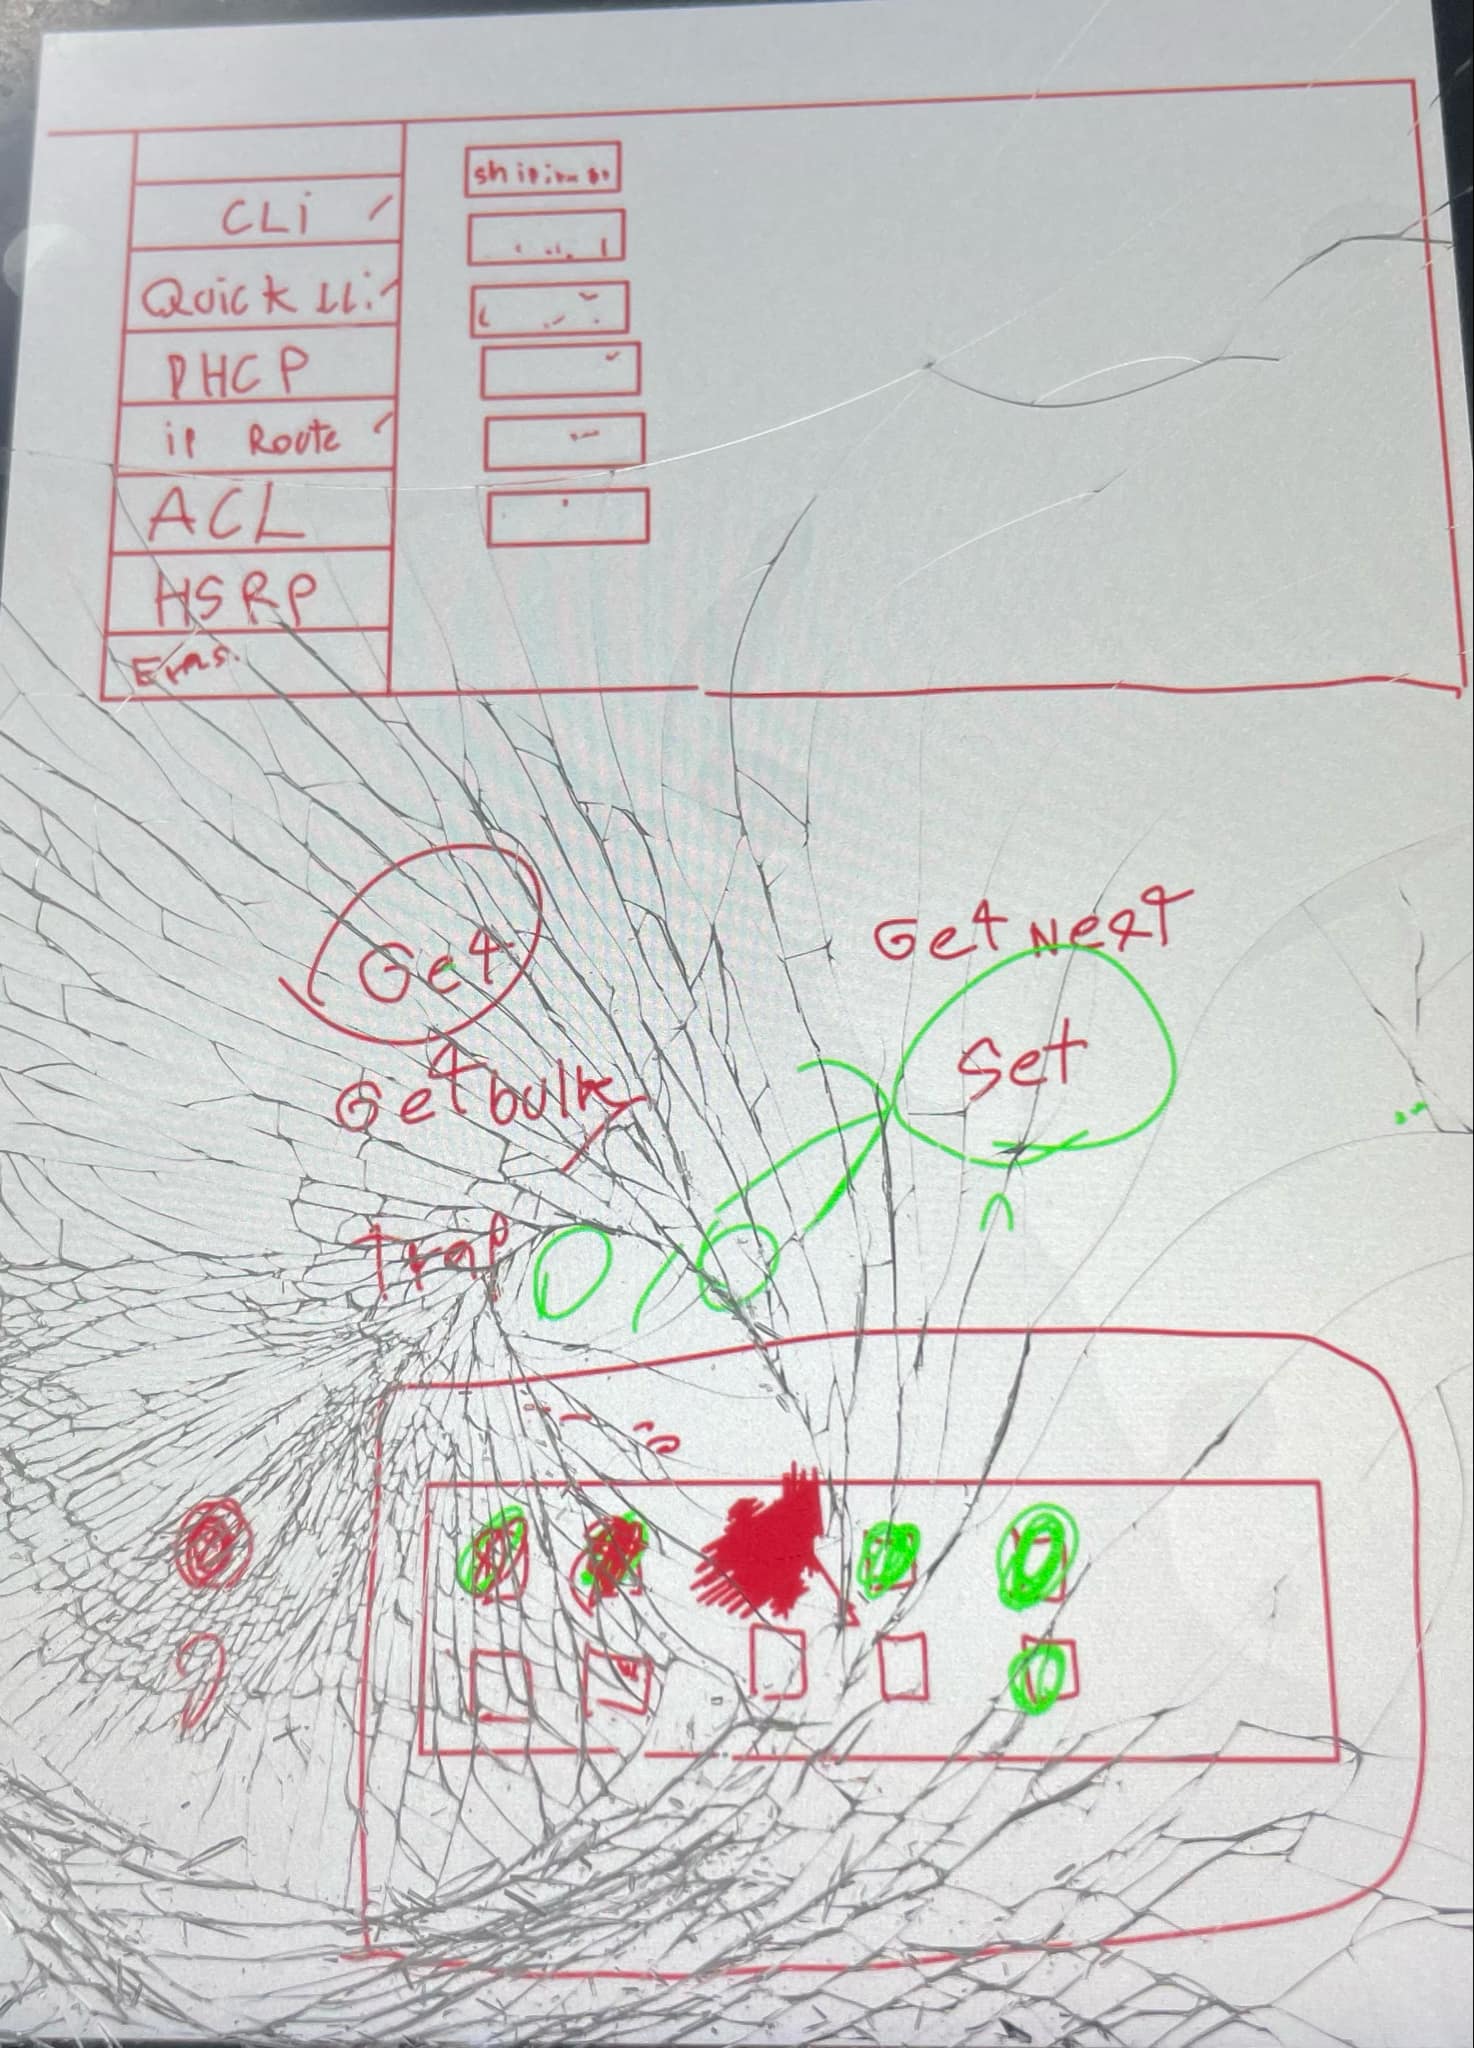 CLi
Quick
DHCP
ip Route
ACL
HSRP
Get
Get Next
Get bulk
Set
Trap